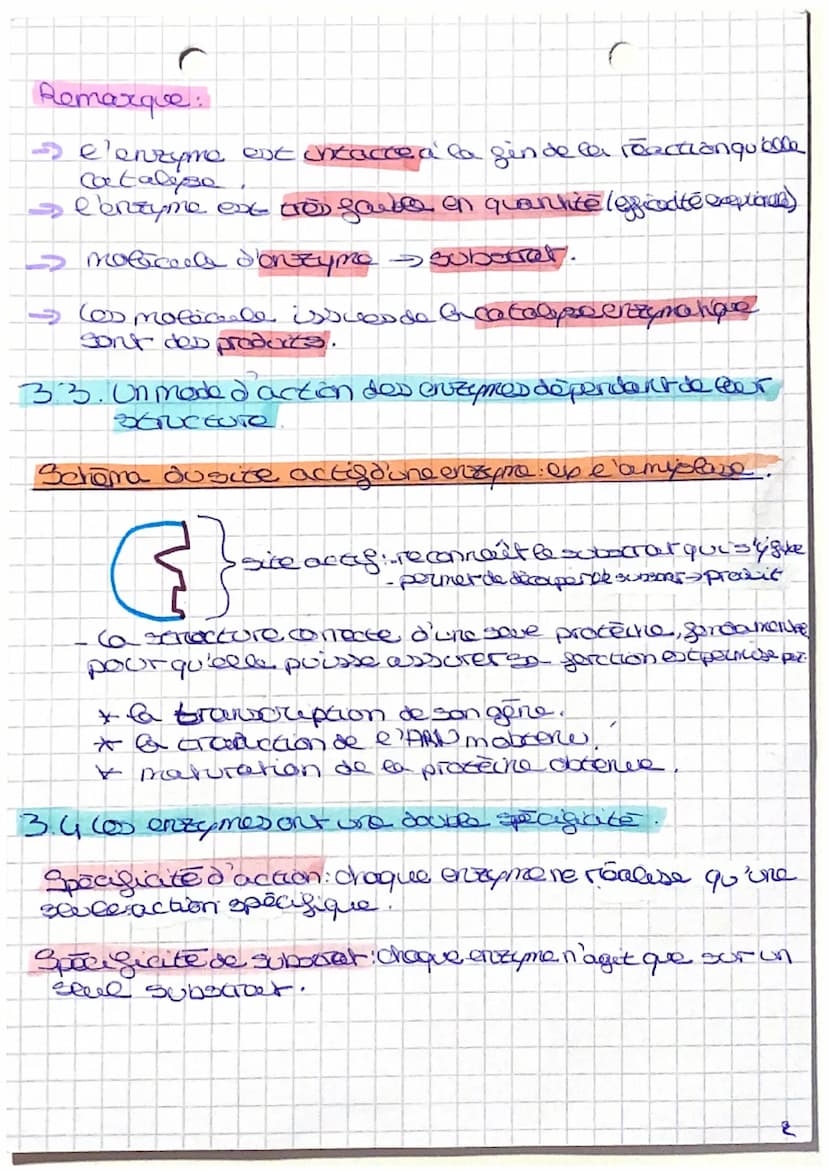 Remarque:
→ l'enzyme est intacte à la fin de la réaction qu'elle
catalyse.
→ l'enzyme est très faible en quantité (efficacité exceptionnelle)
→ molécule d'enzyme → substrat.
→ Les molécule issues de la catalyse enzymatique
sont des produits.
3.3. Un mode d'action des enzymes dépendant de leur
structure
Schéma du site actif d'une enzyme: ex l'amylase.
site actif: - reconnaît le substrat qui s'y fixe
- permet de découper le substrat → produit
- la structure correcte d'une seule protéine, fondamentale
pour qu'elle puisse assurer sa fonction est permise par:
* la transcription de son gène.
* la traduction de l'ARN m obtenu.
* maturation de la protéine obtenue.
3.4 Les enzymes ont une double spécificité.
Spécificité d'action: chaque enzyme ne réalise qu'une
seule action spécifique.
Spécificité de substrat: chaque enzyme n'agit que sur un
seul substrat.
2